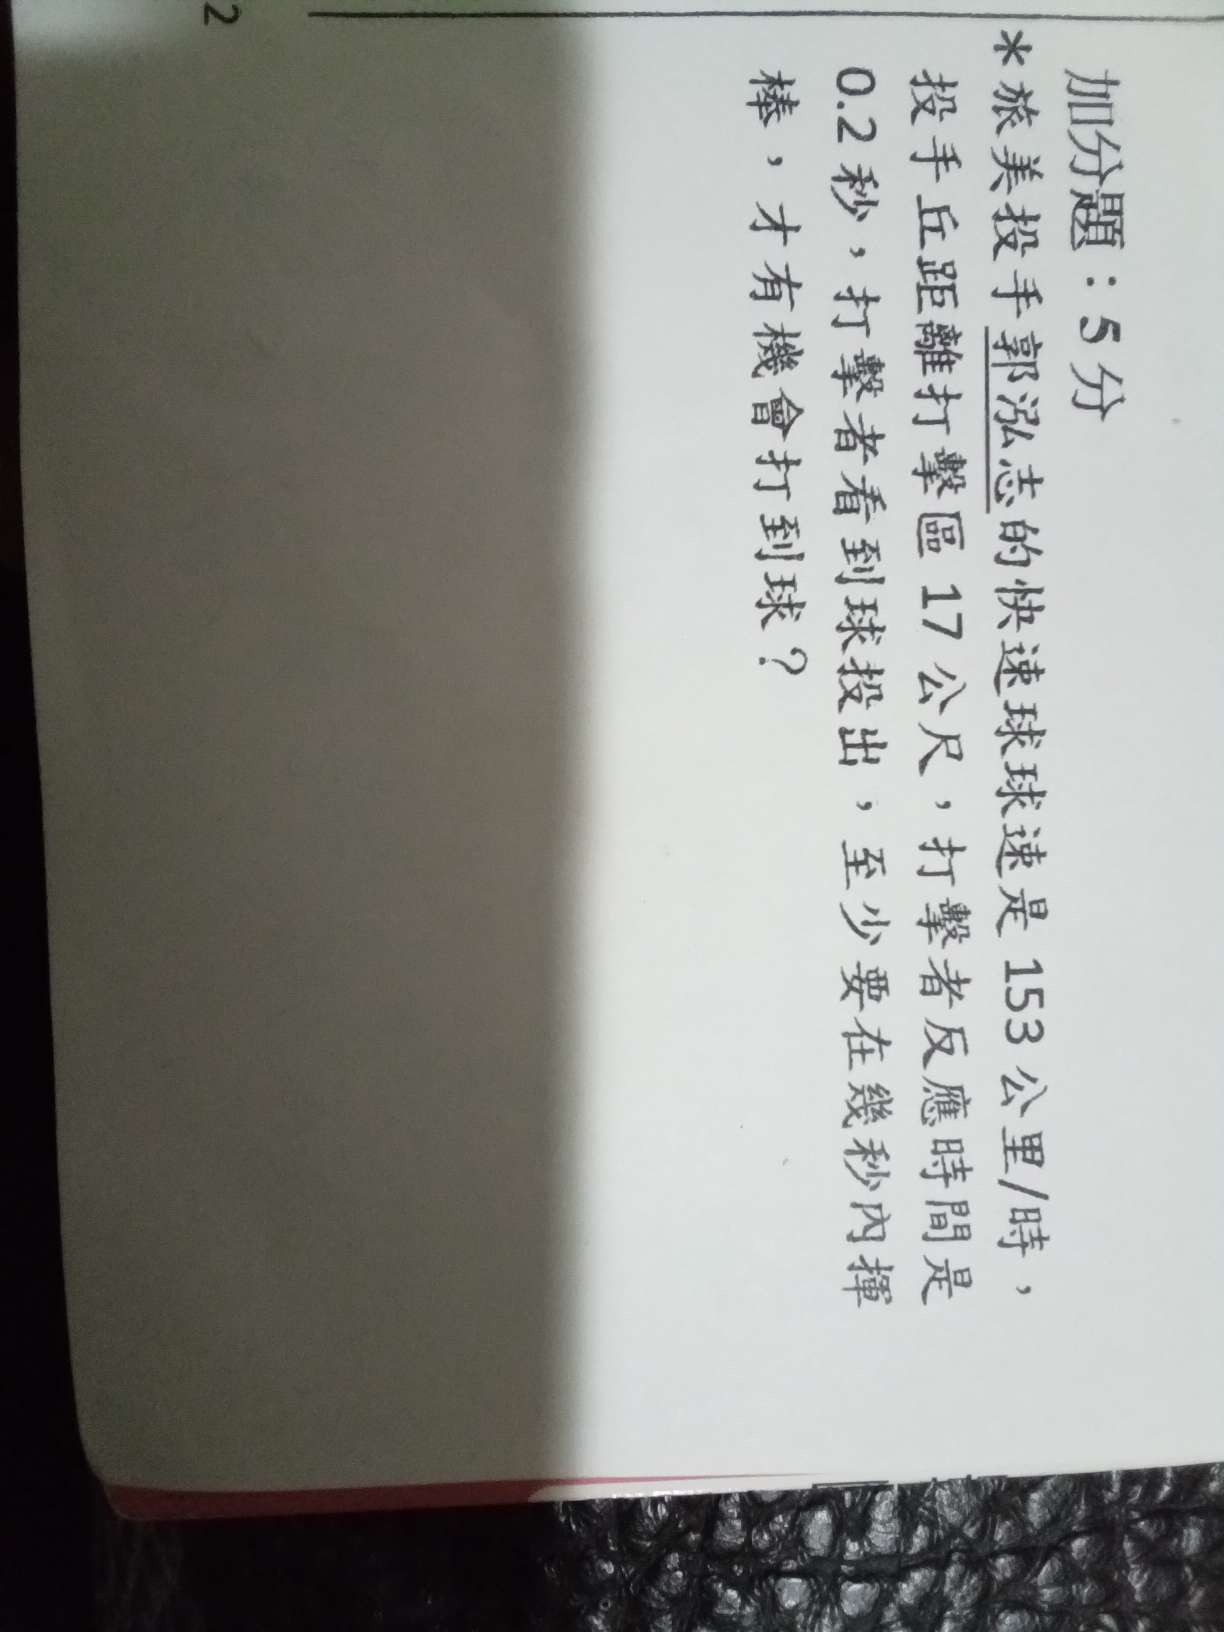 加分題：5 分
＊旅美投手郭泓志的快速球球速是 153 公里/時，
投手丘距離打擊區 17 公尺，打擊者反應時間是
0.2 秒，打擊者看到球投出，至少要在幾秒內揮
棒，才有機會打到球？
2